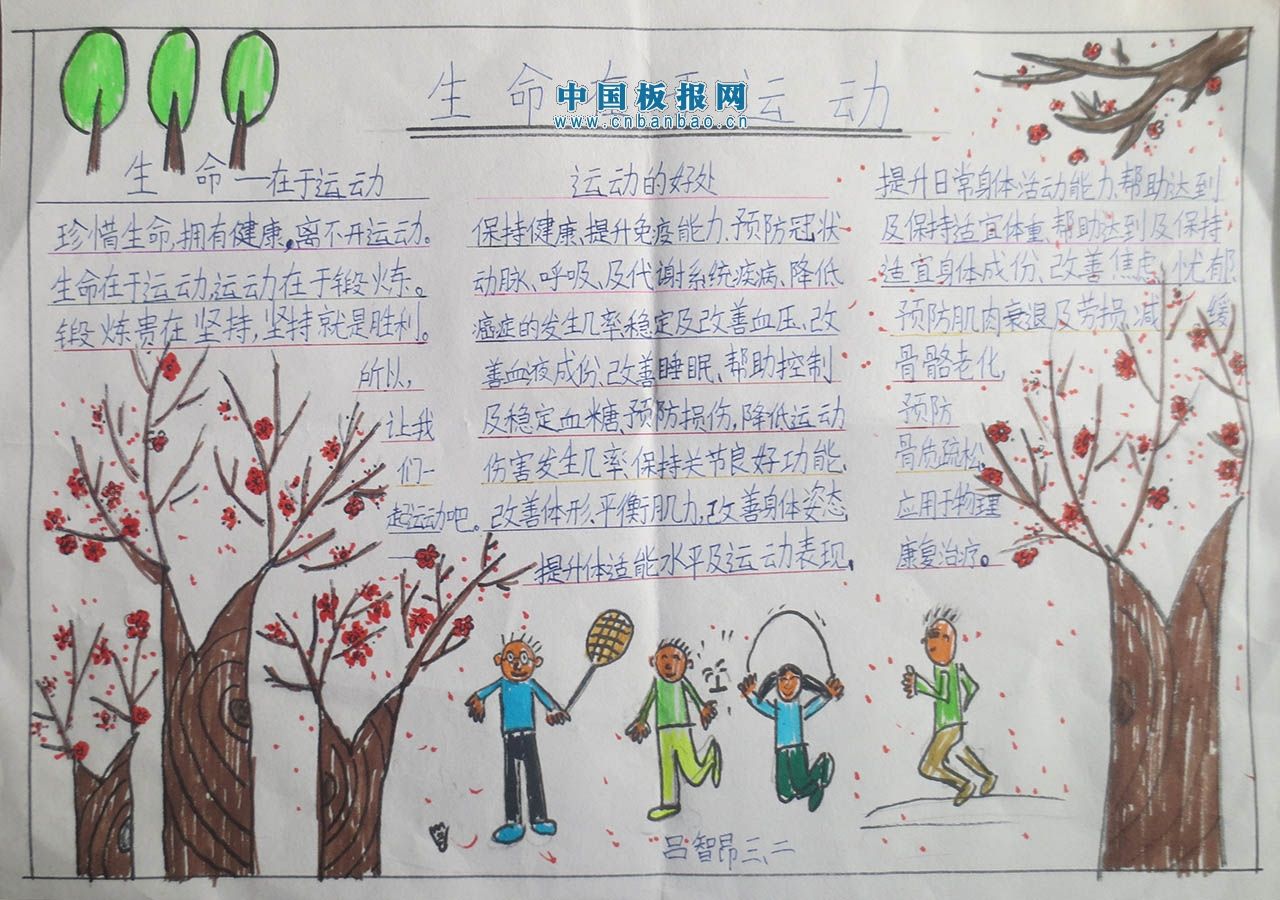 生命在于运动
中国板报网
www.cnbanbao.cn
生命—在于运动
珍惜生命,拥有健康,离不开运动。
生命在于运动,运动在于锻炼。
锻炼贵在坚持,坚持就是胜利。
所以,
让我
们一
起运动吧。
运动的好处
保持健康、提升免疫能力、预防冠状
动脉、呼吸、及代谢系统疾病、降低
癌症的发生几率、稳定及改善血压、改
善血液成份、改善睡眠、帮助控制
及稳定血糖、预防损伤,降低运动
伤害发生几率、保持关节良好功能、
改善体形、平衡肌力、改善身体姿态
提升体适能水平及运动表现,
提升日常身体活动能力、帮助达到
及保持适宜体重、帮助达到及保持
适宜身体成份、改善焦虑、忧郁
预防肌肉衰退及劳损、减缓
骨骼老化,
预防
骨质疏松,
应用于物理
康复治疗。
吕智昂三、二